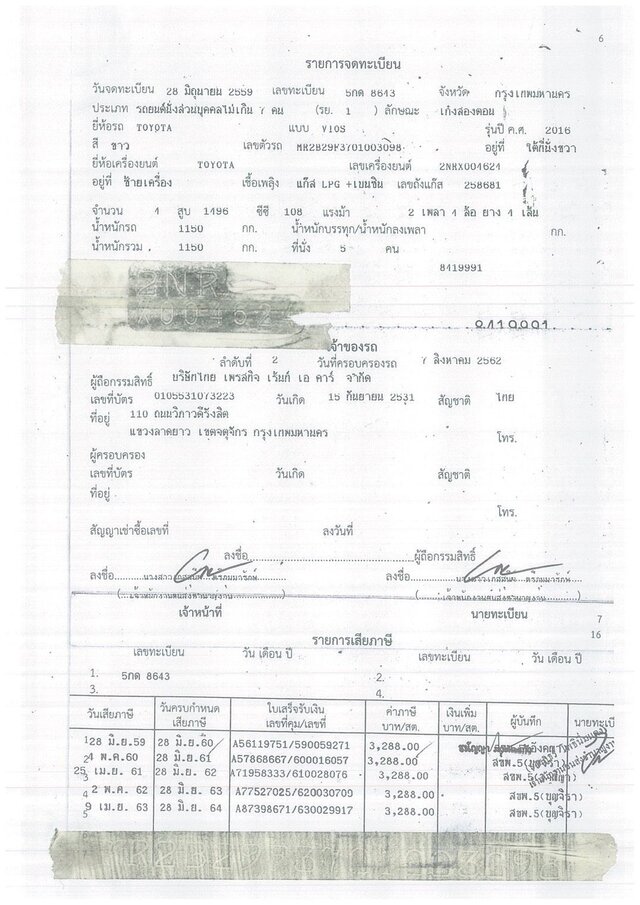 6
รายการจดทะเบียน
วันจดทะเบียน 28 มิถุนายน 2559 เลขทะเบียน 5กด 8643 จังหวัด กรุงเทพมหานคร
ประเภท รถยนต์นั่งส่วนบุคคลไม่เกิน 7 คน (รย. 1 ) ลักษณะ เก๋งสองตอน
ยี่ห้อรถ TOYOTA แบบ VIOS รุ่นปี ค.ศ. 2016
สี ขาว เลขตัวรถ MR2B29F3701003098 อยู่ที่ ใต้ที่นั่งขวา
ยี่ห้อเครื่องยนต์ TOYOTA เลขเครื่องยนต์ 2NRX004624
อยู่ที่ ซ้ายเครื่อง เชื้อเพลิง แก๊ส LPG +เบนซิน เลขถังแก๊ส 258681
จำนวน 4 สูบ 1496 ซีซี 108 แรงม้า 2 เพลา 4 ล้อ ยาง 4 เส้น
น้ำหนักรถ 1150 กก. น้ำหนักบรรทุก/น้ำหนักลงเพลา กก.
น้ำหนักรวม 1150 กก. ที่นั่ง 5 คน
8419991
2NR
เจ้าของรถ
ลำดับที่ 2 วันที่ครอบครองรถ 7 สิงหาคม 2562
ผู้ถือกรรมสิทธิ์ บริษัทไทย เพรสทิจ เร้นท์ เอ คาร์ จำกัด
เลขที่บัตร 0105531073223 วันเกิด 15 กันยายน 2531 สัญชาติ ไทย
ที่อยู่ 110 ถนนวิภาวดีรังสิต
แขวงลาดยาว เขตจตุจักร กรุงเทพมหานคร
โทร.
ผู้ครอบครอง
เลขที่บัตร วันเกิด สัญชาติ
ที่อยู่
โทร.
สัญญาเช่าซื้อเลขที่ ลงวันที่
ลงชื่อ ผู้ถือกรรมสิทธิ์
ลงชื่อ ลงชื่อ
(เจ้าพนักงานขนส่งชำนาญงาน) (เจ้าพนักงานขนส่งชำนาญงาน)
เจ้าหน้าที่ นายทะเบียน
7
16
รายการเสียภาษี
เลขทะเบียน วัน เดือน ปี เลขทะเบียน วัน เดือน ปี
1. 5กด 8643 2.
3. 4.
วันเสียภาษี วันครบกำหนดเสียภาษี ใบเสร็จรับเงิน เลขที่คุม/เลขที่ ค่าภาษี บาท/สต. เงินเพิ่ม บาท/สต. ผู้บันทึก นายทะเบี
1 28 มิ.ย.59 28 มิ.ย.60 A56119751/590059271 3,288.00
4 พ.ค.60 28 มิ.ย.61 A57868667/600016057 3,288.00 สขพ.5(บุญจิรา)
25 เม.ย. 61 28 มิ.ย. 62 A71958333/610028076 3,288.00 สขพ.5(บุญจิรา)
4 2 พ.ค. 62 28 มิ.ย. 63 A77527025/620030709 3,288.00 สขพ.5(บุญจิรา)
5 9 เม.ย. 63 28 มิ.ย. 64 A87398671/630029917 3,288.00 สขพ.5(บุญจิรา)